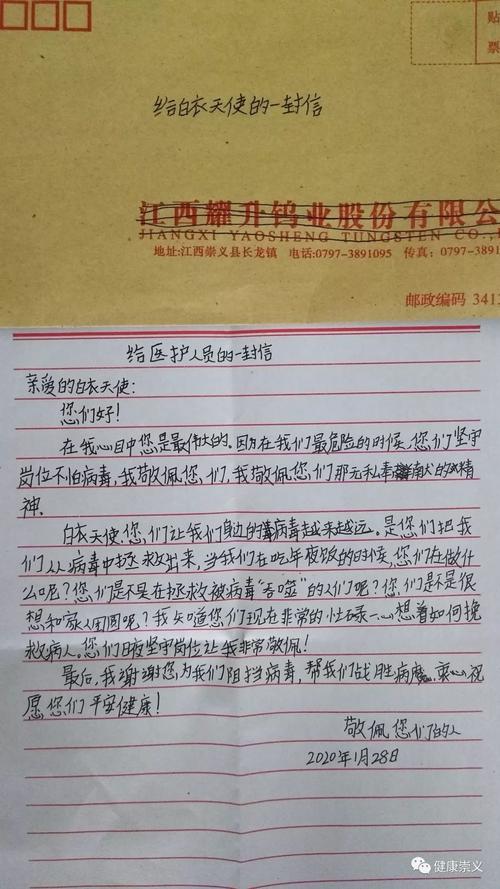 贴
票
给白衣天使的一封信
江西耀升钨业股份有限公
JIANGXI YAOSHENG TUNGSTEN CO.,
地址:江西崇义县长龙镇 电话:0797-3891095 传真: 0797-389
邮政编码 341
给医护人员的一封信
亲爱的白衣天使:
您们好!
在我心目中您是最伟大的。因为在我们最危险的时候,您们坚守
岗位不怕病毒,我敬佩您,们,我敬佩您们那无私奉献的精
神.
白衣天使,您们让我们身边的病毒越来越远。是您们把我
们从病毒中拯救出来,当我们在吃年夜饭的时候,您们在做什
么呢?您们是不是在拯救被病毒“吞噬”的人们呢?您们是不是很
想和家人团圆呢?我知道您们现在非常的忙碌一心想着如何挽
救病人。您们日夜坚守岗位让我非常敬佩!
最后,我谢谢您,为我们阻挡病毒,帮我们战胜病魔.衷心祝
愿您们平安健康!
敬佩您们的人
2020年1月28日
健康崇义